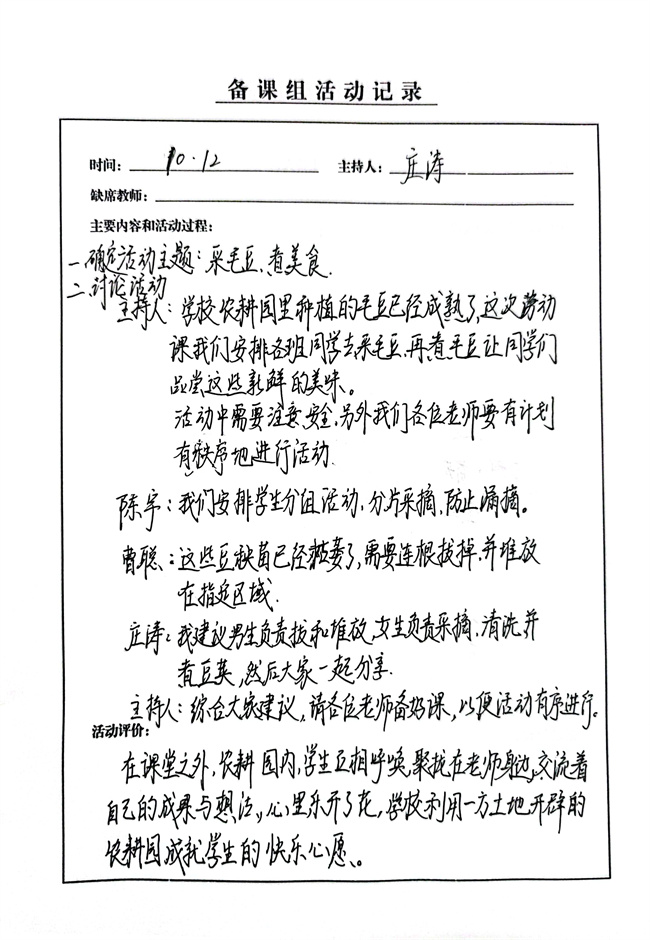 备课组活动记录
时间： 10.12 主持人： 庄涛
缺席教师：
主要内容和活动过程：
一.确定活动主题：采毛豆、煮美食.
二.讨论活动
主持人：学校农耕园里种植的毛豆已经成熟了,这次劳动
课我们安排各班同学去采毛豆.再煮毛豆让同学们
品尝这些新鲜的美味。
活动中需要注意安全,另外我们各位老师要有计划
有秩序地进行活动.
陈宇：我们安排学生分组活动,分片采摘,防止漏摘。
曹聪：这些豆秧苗已经枯萎了,需要连根拔掉.并堆放
在指定区域.
庄涛：我建议男生负责拔和堆放,女生负责采摘.清洗并
煮豆荚,然后大家一起分享.
主持人：综合大家建议,请各位老师备好课,以便活动有序进行。
活动评价：
在课堂之外,农耕园内,学生互相呼唤,聚拢在老师身边,交流着
自己的成果与想法,心里乐开了花,学校利用一方土地开辟的
农耕园成就学生的快乐心愿。